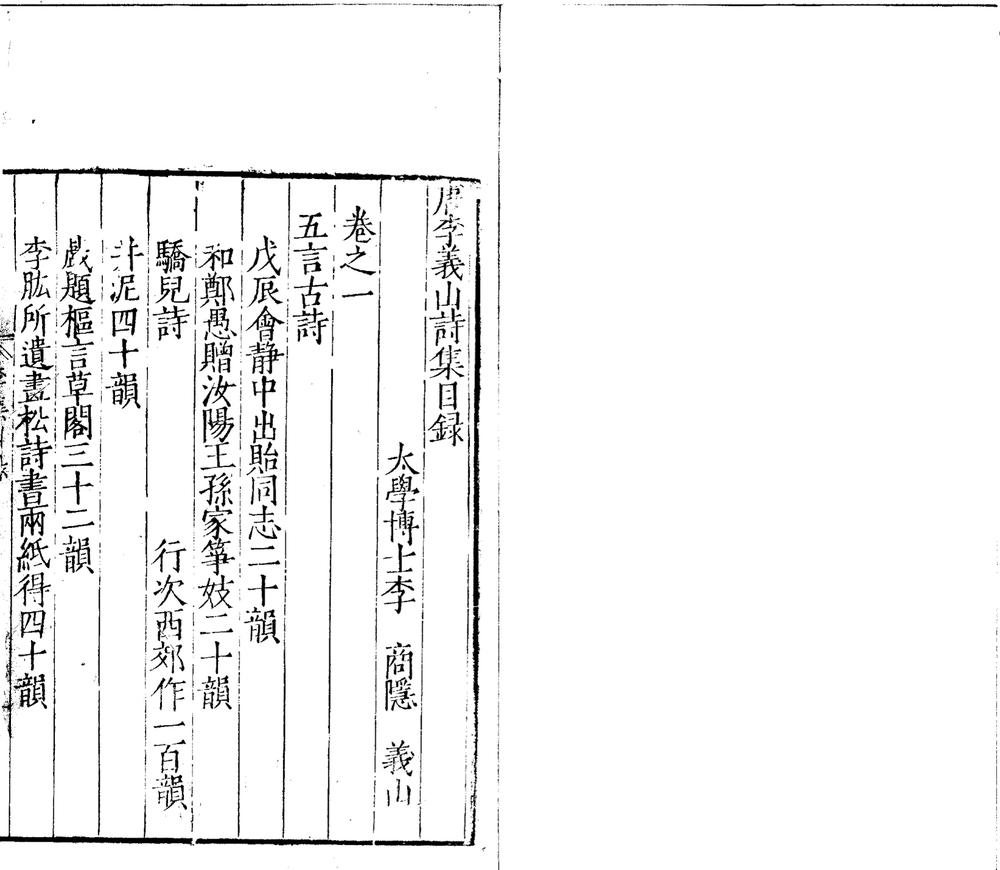 唐李義山詩集目録
太學博士李 商隱 義山
卷之一
五言古詩
戊辰會静中出貽同志二十韻
和鄭愚贈汝陽王孫家箏妓二十韻
驕兒詩 行次西郊作一百韻
井泥四十韻
戲題樞言草閣三十二韻
李肱所遺畫松詩書兩紙得四十韻